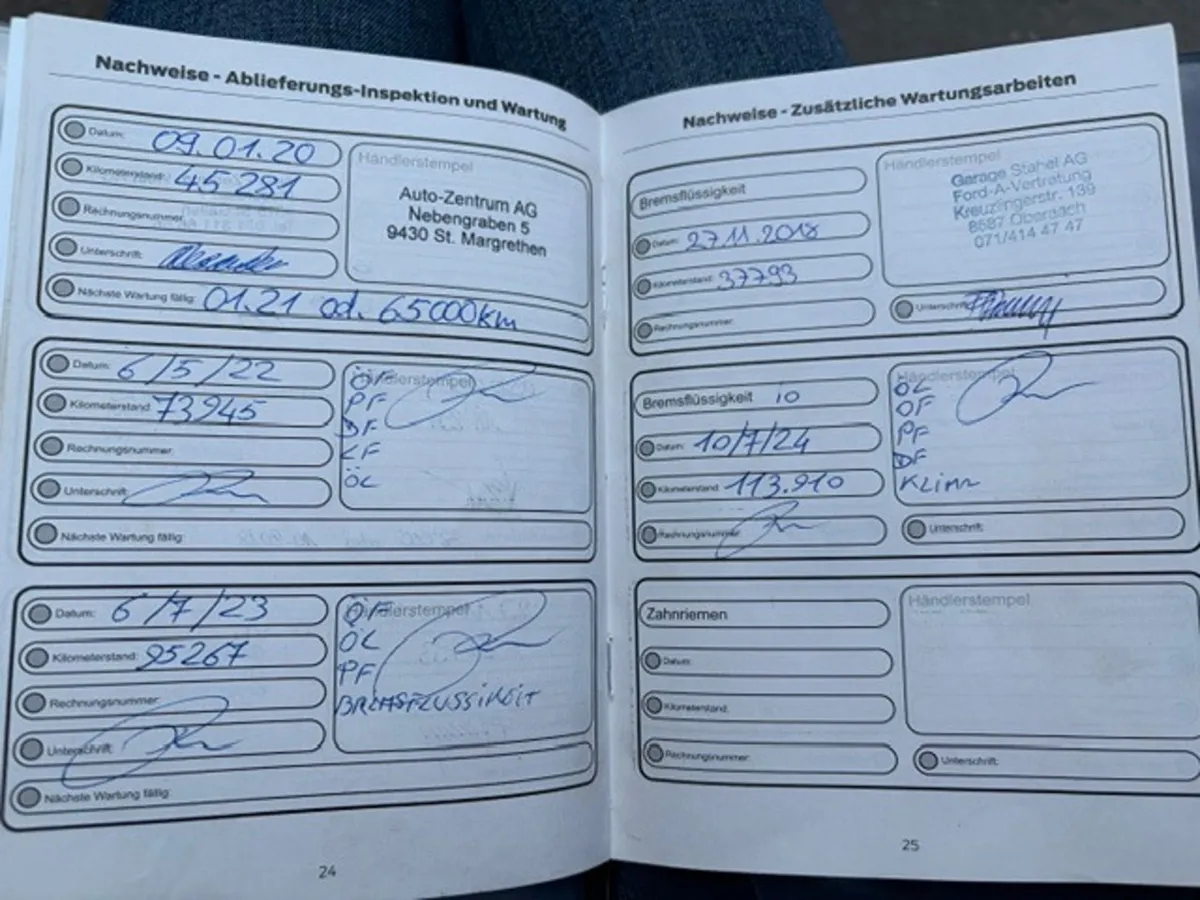 Nachweise - Ablieferungs-Inspektion und Wartung
Datum: 09.01.20
Kilometerstand: 45 281
Rechnungsnummer:
Unterschrift:
Nächste Wartung fällig: 01.21 od. 65000km
Händlerstempel
Auto-Zentrum AG
Nebengraben 5
9430 St. Margrethen
Datum: 6/5/22
Kilometerstand: 73945
Rechnungsnummer:
Unterschrift:
Nächste Wartung fällig:
Händlerstempel
ÖF
PF
DF
LF
ÖL
Datum: 6/7/23
Kilometerstand: 95267
Rechnungsnummer:
Unterschrift:
Nächste Wartung fällig:
Händlerstempel
ÖF
ÖL
PF
BREMSFLUSSIKEIT
24
Nachweise - Zusätzliche Wartungsarbeiten
Bremsflüssigkeit
Datum: 27.11.2018
Kilometerstand: 37793
Rechnungsnummer:
Händlerstempel
Garage Stahel AG
Ford-A-Vertretung
Kreuzlingerstr. 139
8587 Oberaach
071/414 47 47
Unterschrift:
Bremsflüssigkeit io
Datum: 10/7/24
Kilometerstand: 113.910
Rechnungsnummer:
Händlerstempel
ÖL
ÖF
PF
DF
KLIMA
Unterschrift:
Zahnriemen
Datum:
Kilometerstand:
Rechnungsnummer:
Händlerstempel
Unterschrift:
25